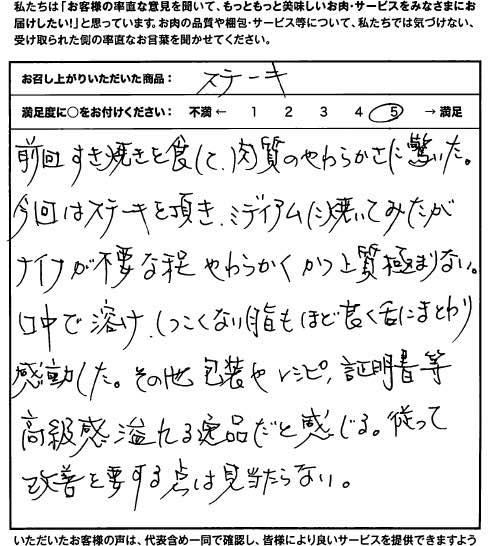 私たちは「お客様の率直な意見を聞いて、もっともっと美味しいお肉・サービスをみなさまにお
届けしたい!」と思っています。お肉の品質や梱包・サービス等について、私たちでは気づけない、
受け取られた側の率直なお言葉を聞かせてください。
お召し上がりいただいた商品: ステーキ
満足度に○をお付けください: 不満 ← 1 2 3 4 5 → 満足
前回すき焼きを食して、肉質のやわらかさに驚いた。
今回はステーキを頂き、ミディアムに焼いてみたが
ナイフが不要な程 やわらかく かつ上質極まりない。
口中で溶け、しつこくない脂もほど良く舌にまとわり
感動した。その他 包装や レシピ、証明書等
高級感溢れる逸品だと感じる。従って
改善を要する点は見当たらない。
いただいたお客様の声は、代表含め一同で確認し、皆様により良いサービスを提供できますよう